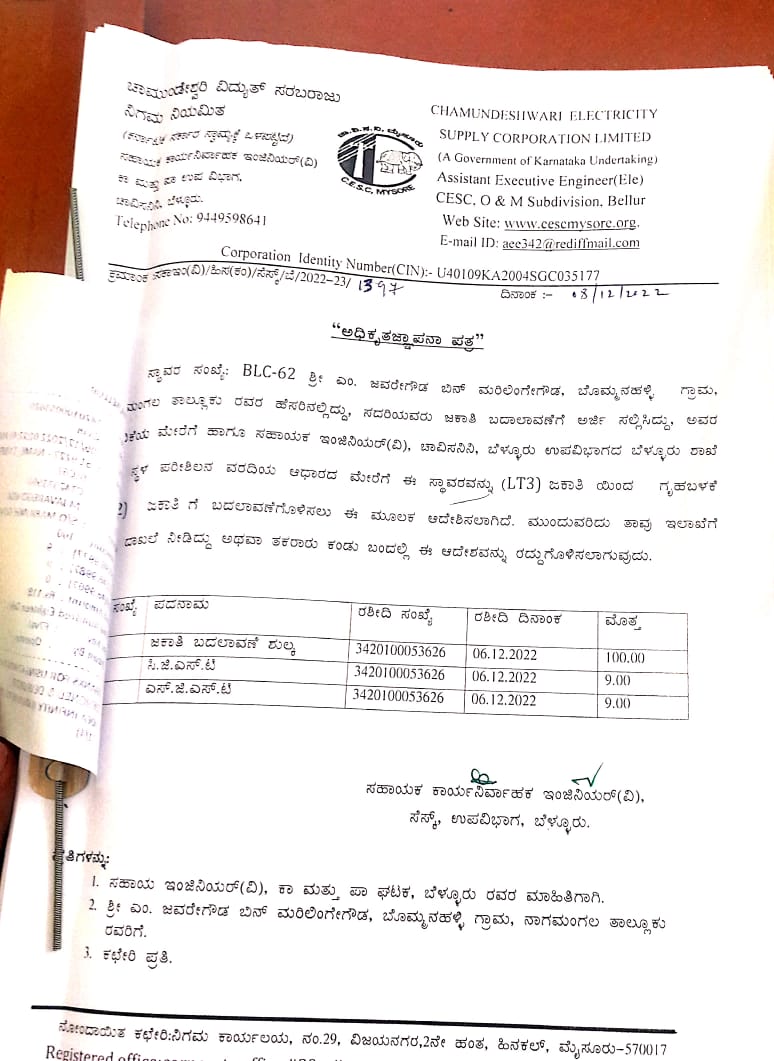 ಚಾಮುಂಡೇಶ್ವರಿ ವಿದ್ಯುತ್ ಸರಬರಾಜು
ನಿಗಮ ನಿಯಮಿತ
(ಕರ್ನಾಟಕ ಸರ್ಕಾರ ಸ್ವಾಮ್ಯಕ್ಕೆ ಒಳಪಟ್ಟಿದೆ)
ಸಹಾಯಕ ಕಾರ್ಯನಿರ್ವಾಹಕ ಇಂಜಿನಿಯರ್(ವಿ)
ಕಾ ಮತ್ತು ಪಾ ಉಪ ವಿಭಾಗ,
ಚಾವಿಸನಿನಿ, ಬೆಳ್ಳೂರು.
Telephone No: 9449598641
ಚಾ.ವಿ.ಸ.ನಿ. ಮೈಸೂರು
C.E.S.C, MYSORE
CHAMUNDESHWARI ELECTRICITY
SUPPLY CORPORATION LIMITED
(A Government of Karnataka Undertaking)
Assistant Executive Engineer(Ele)
CESC, O & M Subdivision, Bellur
Web Site: www.cescmysore.org,
E-mail ID: aee342@rediffmail.com
Corporation Identity Number(CIN):- U40109KA2004SGC035177
ಕ್ರಮಾಂಕ :ಸಕಾಇಂ(ವಿ)/ಹಿಸ(ಕಂ)/ಸೆಸ್ಕ್/ಬೆ/2022-23/ 1397 ದಿನಾಂಕ :- 08/12/2022
“ಅಧಿಕೃತಜ್ಞಾಪನಾ ಪತ್ರ”
ಸ್ಥಾವರ ಸಂಖ್ಯೆ: BLC-62 ಶ್ರೀ ಎಂ. ಜವರೇಗೌಡ ಬಿನ್ ಮರಿಲಿಂಗೇಗೌಡ, ಬೊಮ್ಮನಹಳ್ಳಿ ಗ್ರಾಮ,
ಮಂಗಲ ತಾಲ್ಲೂಕು ರವರ ಹೆಸರಿನಲ್ಲಿದ್ದು, ಸದರಿಯವರು ಜಕಾತಿ ಬದಾಲಾವಣೆಗೆ ಅರ್ಜಿ ಸಲ್ಲಿಸಿದ್ದು, ಅವರ
ಕೆಯ ಮೇರೆಗೆ ಹಾಗೂ ಸಹಾಯಕ ಇಂಜಿನಿಯರ್(ವಿ), ಚಾವಿಸನಿನಿ, ಬೆಳ್ಳೂರು ಉಪವಿಭಾಗದ ಬೆಳ್ಳೂರು ಶಾಖೆ
ಸ್ಥಳ ಪರೀಶಿಲನ ವರದಿಯ ಆಧಾರದ ಮೇರೆಗೆ ಈ ಸ್ಥಾವರವನ್ನು (LT3) ಜಕಾತಿ ಯಿಂದ ಗೃಹಬಳಕೆ
2) ಜಕಾತಿ ಗೆ ಬದಲಾವಣೆಗೊಳಿಸಲು ಈ ಮೂಲಕ ಆದೇಶಿಸಲಾಗಿದೆ. ಮುಂದುವರಿದು ತಾವು ಇಲಾಖೆಗೆ
ದಾಖಲೆ ನೀಡಿದ್ದು ಅಥವಾ ತಕರಾರು ಕಂಡು ಬಂದಲ್ಲಿ ಈ ಆದೇಶವನ್ನು ರದ್ದುಗೊಳಿಸಲಾಗುವುದು.
ಸಂಖ್ಯೆ ಪದನಾಮ ರಶೀದಿ ಸಂಖ್ಯೆ ರಶೀದಿ ದಿನಾಂಕ ಮೊತ್ತ
ಜಕಾತಿ ಬದಲಾವಣೆ ಶುಲ್ಕ 3420100053626 06.12.2022 100.00
ಸಿ.ಜಿ.ಎಸ್.ಟಿ 3420100053626 06.12.2022 9.00
ಎಸ್.ಜಿ.ಎಸ್.ಟಿ 3420100053626 06.12.2022 9.00
ಸಹಾಯಕ ಕಾರ್ಯನಿರ್ವಾಹಕ ಇಂಜಿನಿಯರ್(ವಿ),
ಸೆಸ್ಕ್, ಉಪವಿಭಾಗ, ಬೆಳ್ಳೂರು.
ಪ್ರತಿಗಳನ್ನು:
1. ಸಹಾಯ ಇಂಜಿನಿಯರ್(ವಿ), ಕಾ ಮತ್ತು ಪಾ ಘಟಕ, ಬೆಳ್ಳೂರು ರವರ ಮಾಹಿತಿಗಾಗಿ.
2. ಶ್ರೀ ಎಂ. ಜವರೇಗೌಡ ಬಿನ್ ಮರಿಲಿಂಗೇಗೌಡ, ಬೊಮ್ಮನಹಳ್ಳಿ ಗ್ರಾಮ, ನಾಗಮಂಗಲ ತಾಲ್ಲೂಕು
ರವರಿಗೆ.
3. ಕಛೇರಿ ಪ್ರತಿ.
ನೋಂದಾಯಿತ ಕಛೇರಿ:ನಿಗಮ ಕಾರ್ಯಲಯ, ನಂ.29, ವಿಜಯನಗರ,2ನೇ ಹಂತ, ಹಿನಕಲ್, ಮೈಸೂರು-570017
Registered